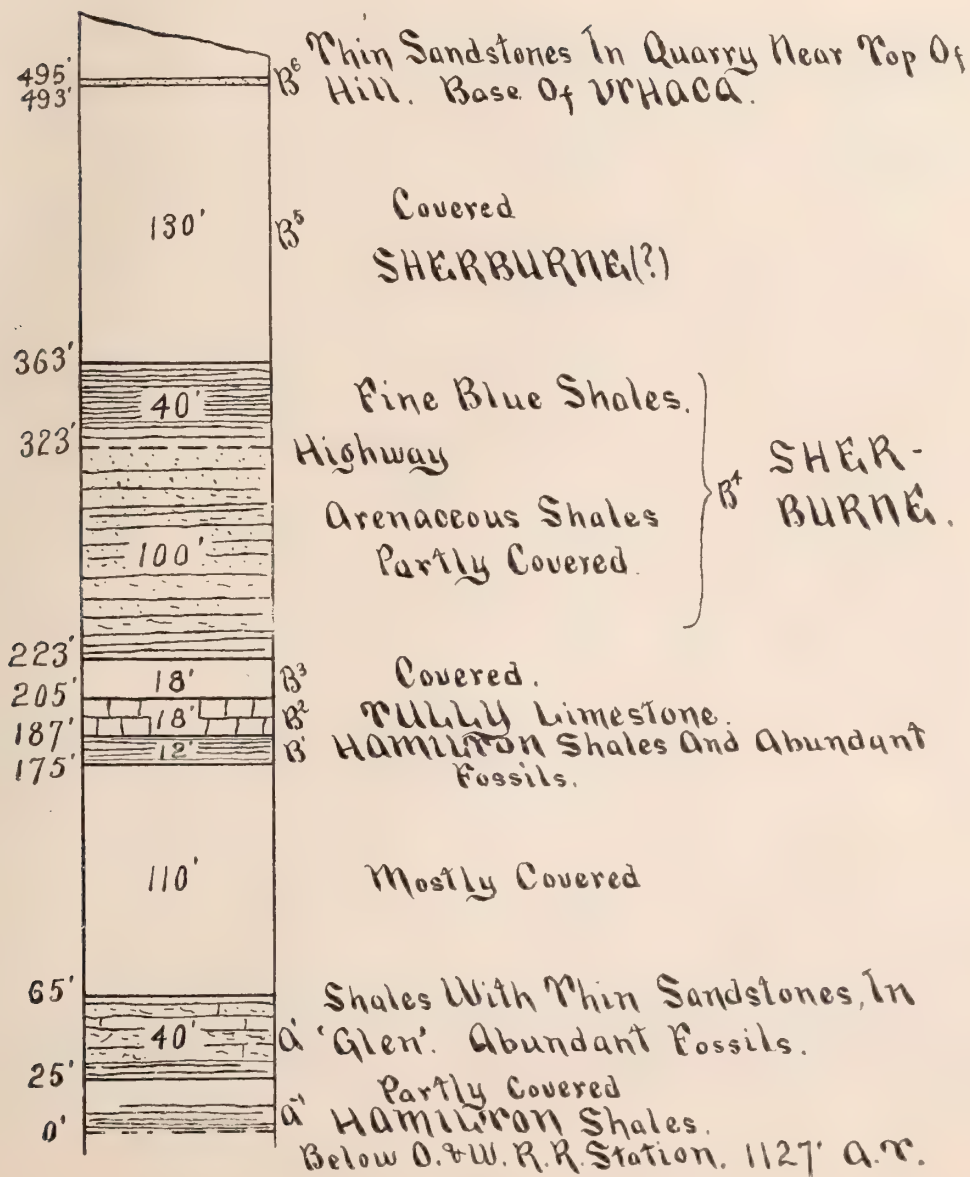 495'
493'
B⁶ Thin Sandstones In Quarry Near Top Of
Hill. Base Of ITHACA.
130'
B⁵
Covered
SHERBURNE(?)
363'
40'
Fine Blue Shales.
323'
Highway
Arenaceous Shales
Partly Covered.
100'
B⁴
SHER-
BURNE.
223'
18'
B³
Covered.
205'
18'
B²
TULLY Limestone.
187'
12'
B¹
HAMILTON Shales And Abundant
Fossils.
175'
110'
Mostly Covered
65'
Shales With Thin Sandstones, In
40'
A¹
'Glen'. Abundant Fossils.
25'
Partly Covered
A⁻¹
HAMILTON Shales.
0'
Below O.&W. R.R. Station. 1127' A.T.